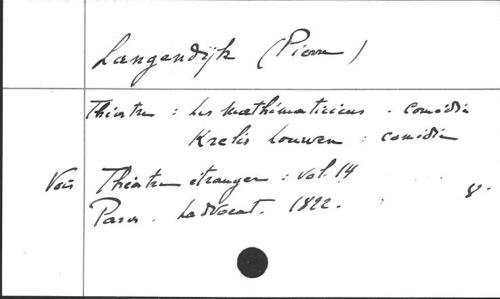 Langendijk (Pierre)
Théatre : Les Mathématiciens . comédie
Krelis Louwen : comédie
Voir Théatre étranger : vol. 14
Paris . Ladvocat . 1822 . : 8°